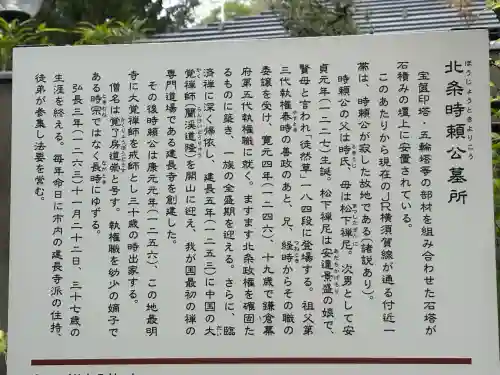 北条時頼公墓所
ほうじょうときよりこう
宝篋印塔・五輪塔等の部材を組み合わせた石塔が
石積みの壇上に安置されている。
このあたりから現在のJR横須賀線が通る付近一
帯は、時頼公が寂した故地である(諸説あり)。
時頼公の父は時氏、母は松下禅尼。次男として安
貞元年(一二二七)生誕。松下禅尼は安達景盛の娘で、
賢母と言われ『徒然草』一八四段に登場する。祖父第
三代執権泰時の善政のあと、兄、経時からその職の
委譲を受け、寛元四年(一二四六)、十九歳で鎌倉幕
府第五代執権職に就く。ますます北条政権を確固た
るものに築き、一族の全盛期を迎える。さらに、臨
済禅に深く帰依し、建長五年(一二五三)に中国の大
覚禅師(蘭渓道隆)を開山に迎え、我が国最初の禅の
専門道場である建長寺を創建した。
その後時頼公は康元元年(一二五六)、この地最明
寺に大覚禅師を戒師とし三十歳の時出家する。
僧名は覚了房道崇と号す。執権職を幼少の嫡子で
ある時宗ではなく長時にゆずる。
弘長三年(一二六三)十一月二十二日、三十七歳の
生涯を終える。毎年命日に市内の建長寺派の住持、
徒弟が参集し法要を営む。